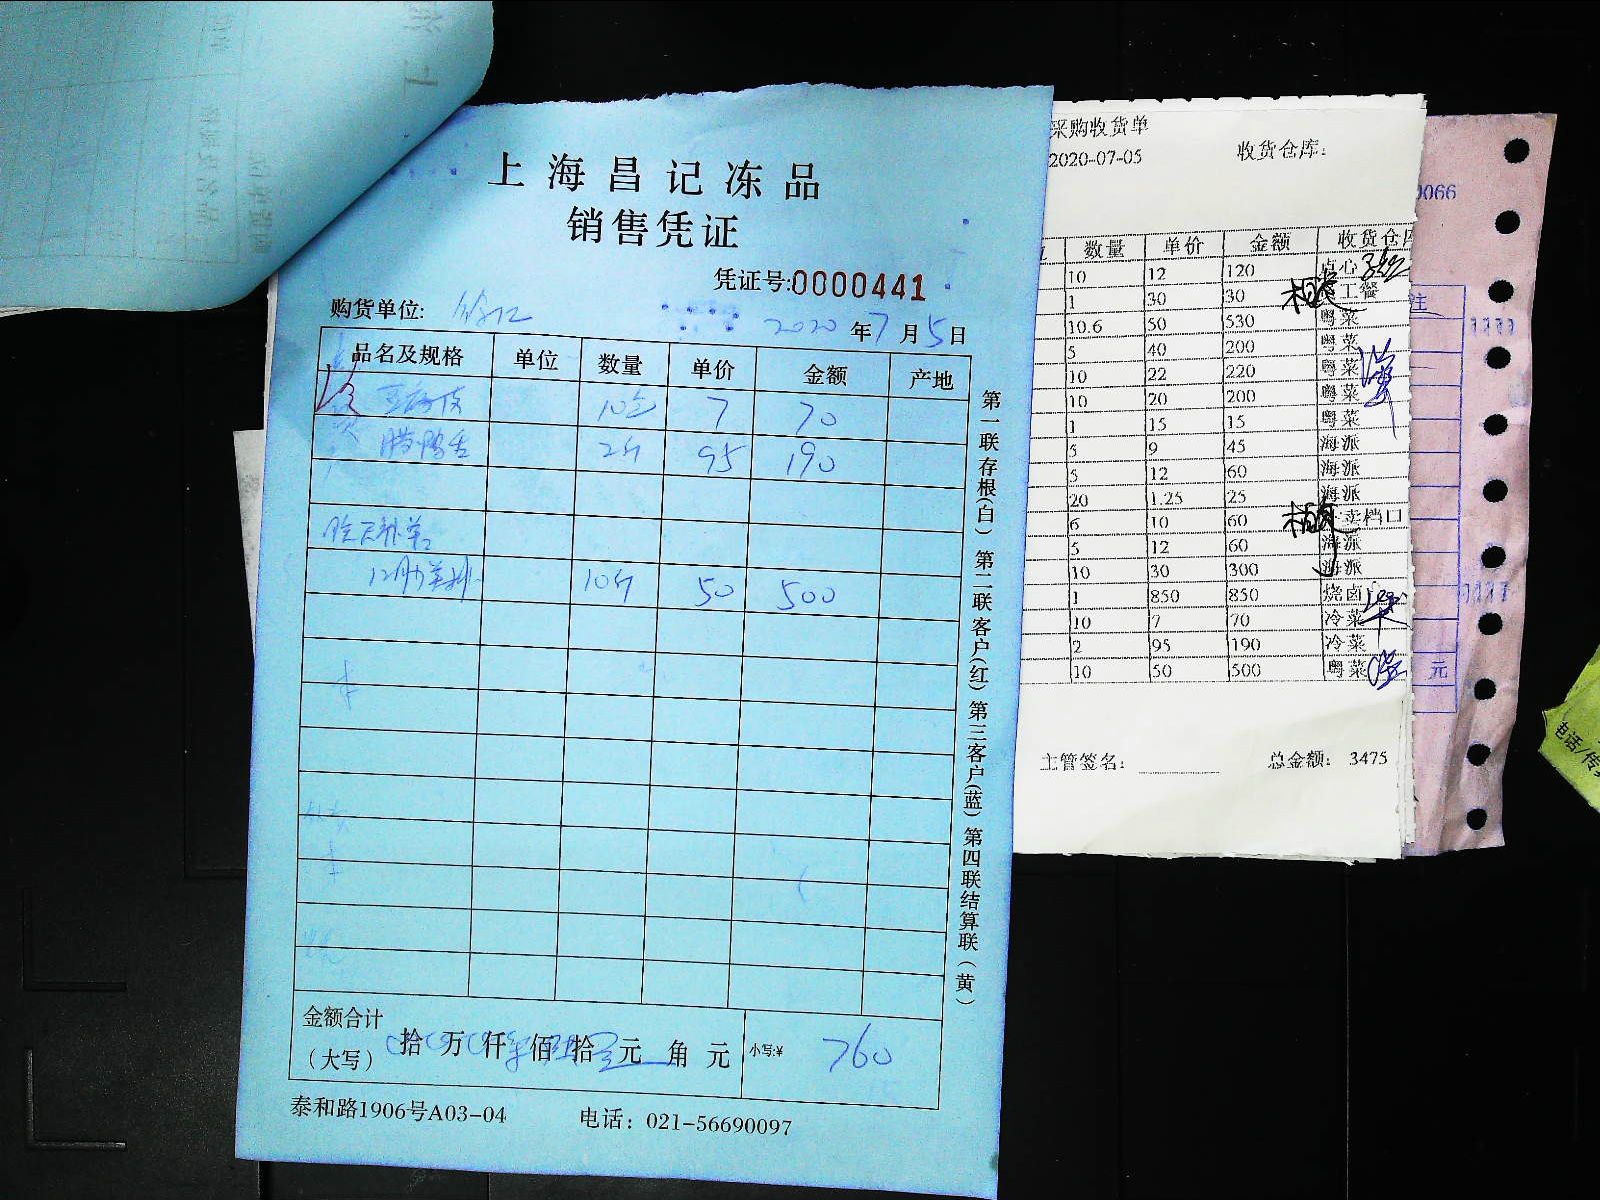 上海昌记冻品
销售凭证
凭证号:0000441
购货单位:
2020年7月5日
品名及规格 单位 数量 单价 金额 产地
豆腐皮 10包 7 70
腊鸭舌 2斤 95 190
昨天补单:
12肋羊排 10斤 50 500
金额合计
(大写) 拾 万 仟 佰 拾 元 角 元 小写:¥ 760
泰和路1906号A03-04 电话: 021-56690097
第一联存根(白) 第二联客户(红) 第三客户(蓝) 第四联结算联(黄)
采购收货单
2020-07-05 收货仓库:
数量 单价 金额 收货仓库
10 12 120 点心
1 30 30 员工餐
10.6 50 530 粤菜
5 40 200 粤菜
10 22 220 粤菜
10 20 200 粤菜
1 15 15 粤菜
5 9 45 海派
5 12 60 海派
20 1.25 25 海派
6 10 60 外卖档口
5 12 60 海派
10 30 300 海派
1 850 850 烧卤
10 7 70 冷菜
2 95 190 冷菜
10 50 500 粤菜
主管签名: 总金额: 3475
0066
注
元
电话/传